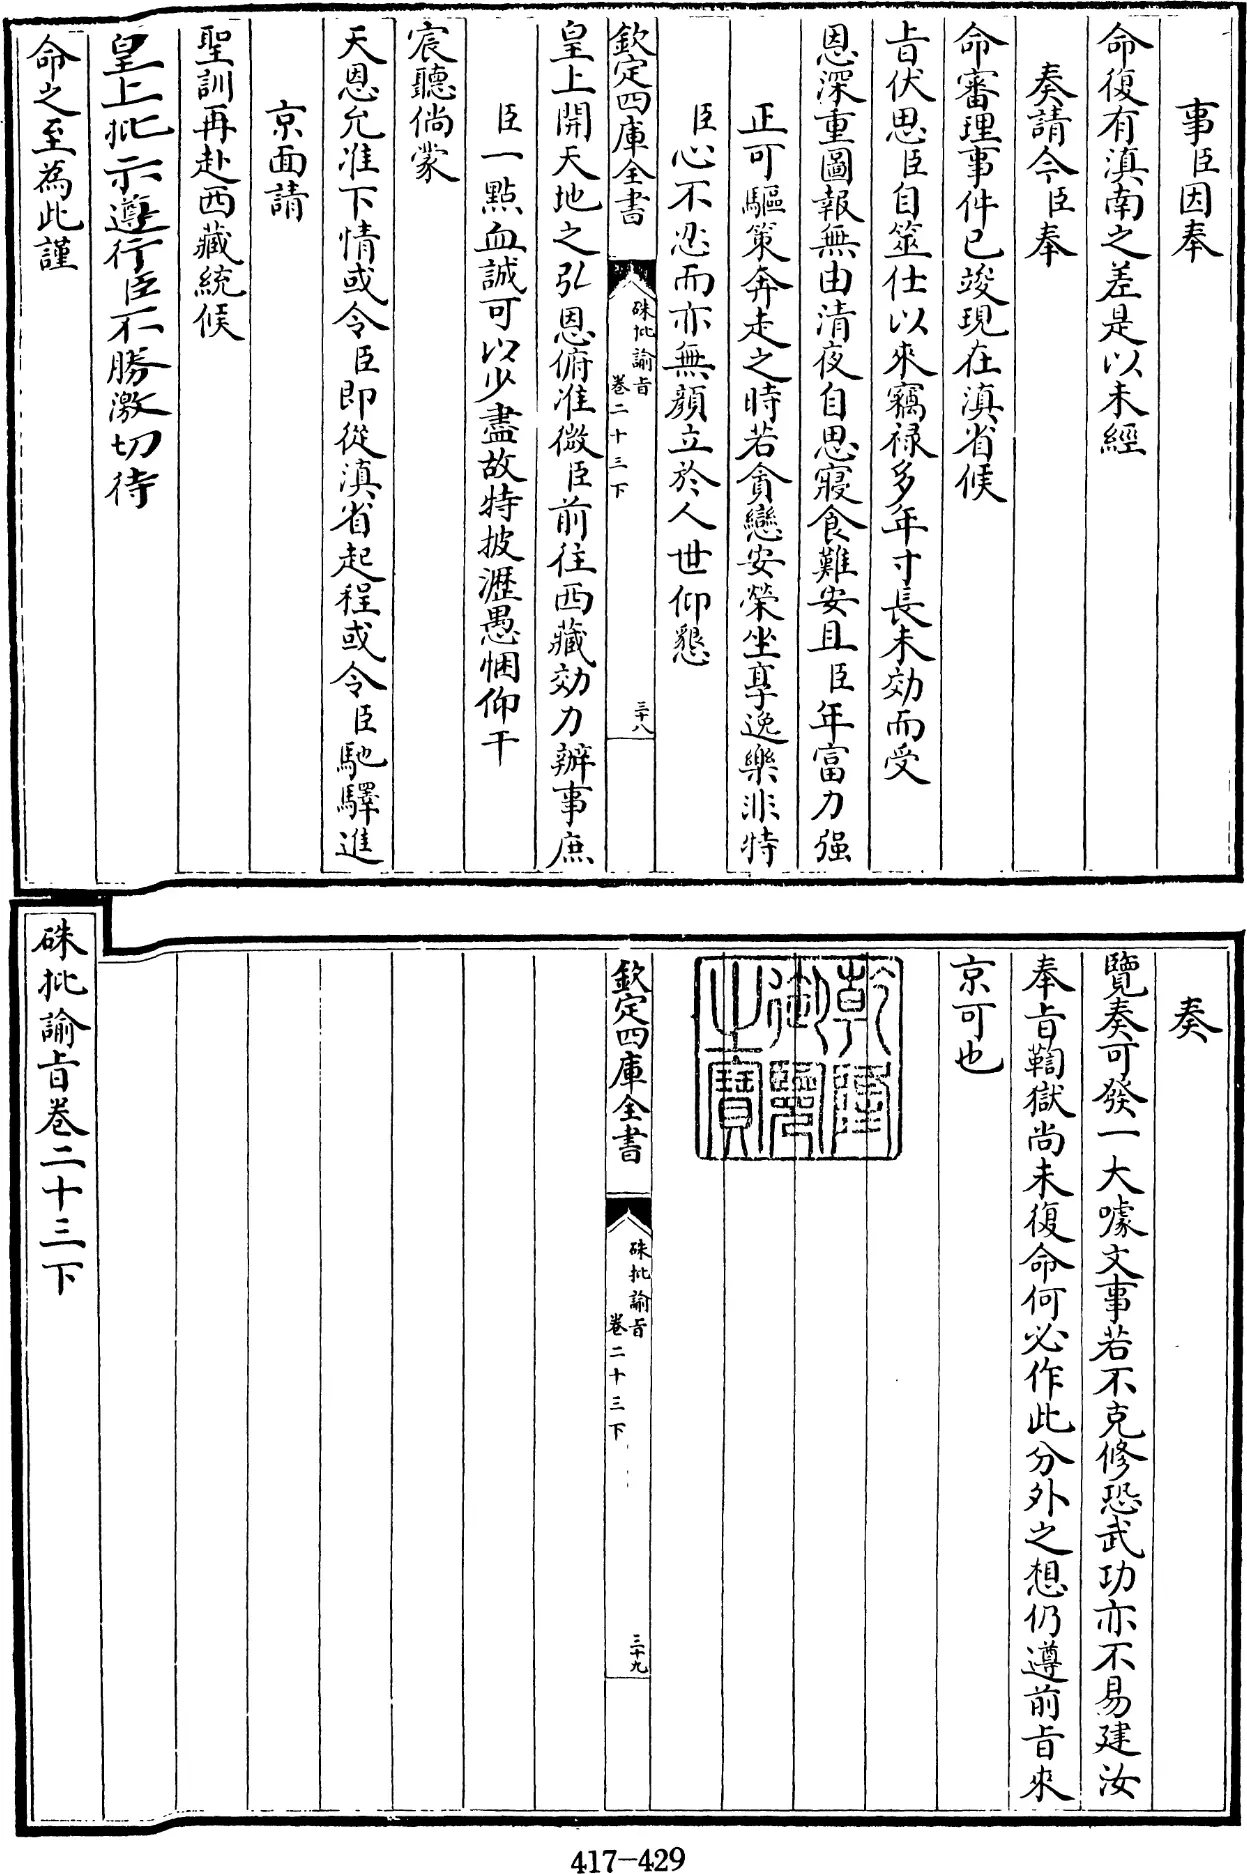 事臣因奉
命復有滇南之差是以未經
奏請今臣奉
命審理事件已竣現在滇省候
旨伏思臣自筮仕以來竊禄多年寸長未効而受
恩深重圖報無由清夜自思寢食難安且臣年富力强
正可驅策奔走之時若貪戀安榮坐享逸樂非特
臣心不忍而亦無顔立於人世仰懇
欽定四庫全書
硃批諭旨
卷二十三下
三十八
皇上開天地之弘恩俯准微臣前往西藏効力辦事庶
臣一點血誠可以少盡故特披瀝愚悃仰干
宸聽倘蒙
天恩允准下情或令臣即從滇省起程或令臣馳驛進
京面請
聖訓再赴西藏統候
皇上批示遵行臣不勝激切待
命之至為此謹
奏
覽奏可發一大噱文事若不克修恐武功亦不易建汝
奉旨鞫獄尚未復命何必作此分外之想仍遵前旨來
京可也
乾隆御覽之寶
欽定四庫全書
硃批諭旨
卷二十三下
三十九
硃批諭旨卷二十三下
417-429